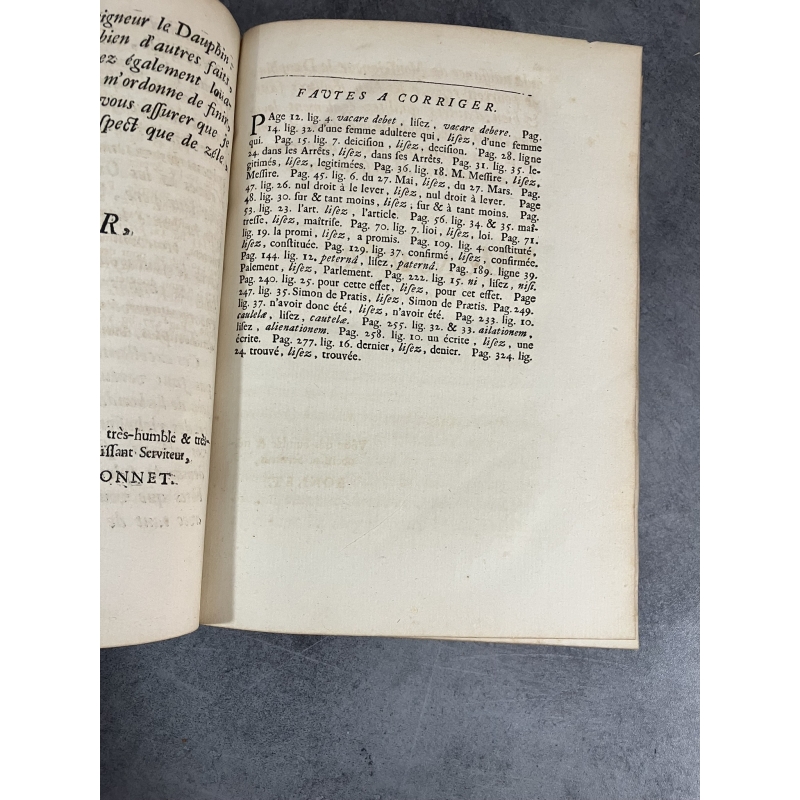 signeur le Dauphin
bien d'autres faits,
ez également loüa-
m'ordonne de finir,
vous assurer que je
spect que de zéle,
R,
très-humble & très-
issant Serviteur,
ONNET.
FAVTES A CORRIGER.
PAge 12. lig. 4. vacare debet, lisez, vacare debere. Pag.
14. lig. 32. d'une femme adultere qui, lisez, d'une femme
qui. Pag. 15. lig. 7. deicision, lisez, decision. Pag. 28. ligne
24. dans les Arrêts, lisez, dans ses Arrêts. Pag. 31. lig. 35. le-
gitimés, lisez, legitimées. Pag. 36. lig. 18. M. Messire, lisez,
Messire. Pag. 45. lig. 6. du 27. Mai, lisez, du 27. Mars. Pag.
47. lig. 26. nul droit à le lever, lisez, nul droit à lever. Page
48. lig. 30. sur & tant moins, lisez, sur & à tant moins. Pag.
53. lig. 23. l'art. lisez, l'article. Pag. 56. lig. 34. & 35. maî-
tresse, lisez, maîtrise. Pag. 70. lig. 7. lioi, lisez, loi. Pag. 71.
lig. 19. la promi, lisez, a promis. Pag. 109. lig. 4. constitué,
lisez, constituée. Pag. 129. lig. 37. confirmé, lisez, confirmée.
Pag. 144. lig. 12. peternâ, lisez, paternâ. Pag. 189. ligne 39.
Palement, lisez, Parlement. Pag. 222. lig. 15. ni, lisez, nisi.
Pag. 240. lig. 25. pour cette effet, lisez, pour cet effet. Page
247. lig. 35. Simon de Pratis, lisez, Simon de Prætis. Pag. 249.
lig. 37. n'avoir donc été, lisez, n'avoir été. Pag. 233. lig. 10.
caulelæ, lisez, cautelæ. Pag. 255. lig. 32. & 33. ailationem,
lisez, alienationem. Pag. 258. lig. 10. un écrite, lisez, une
écrite. Pag. 277. lig. 16. dernier, lisez, denier. Pag. 324. lig.
24. trouvé, lisez, trouvée.